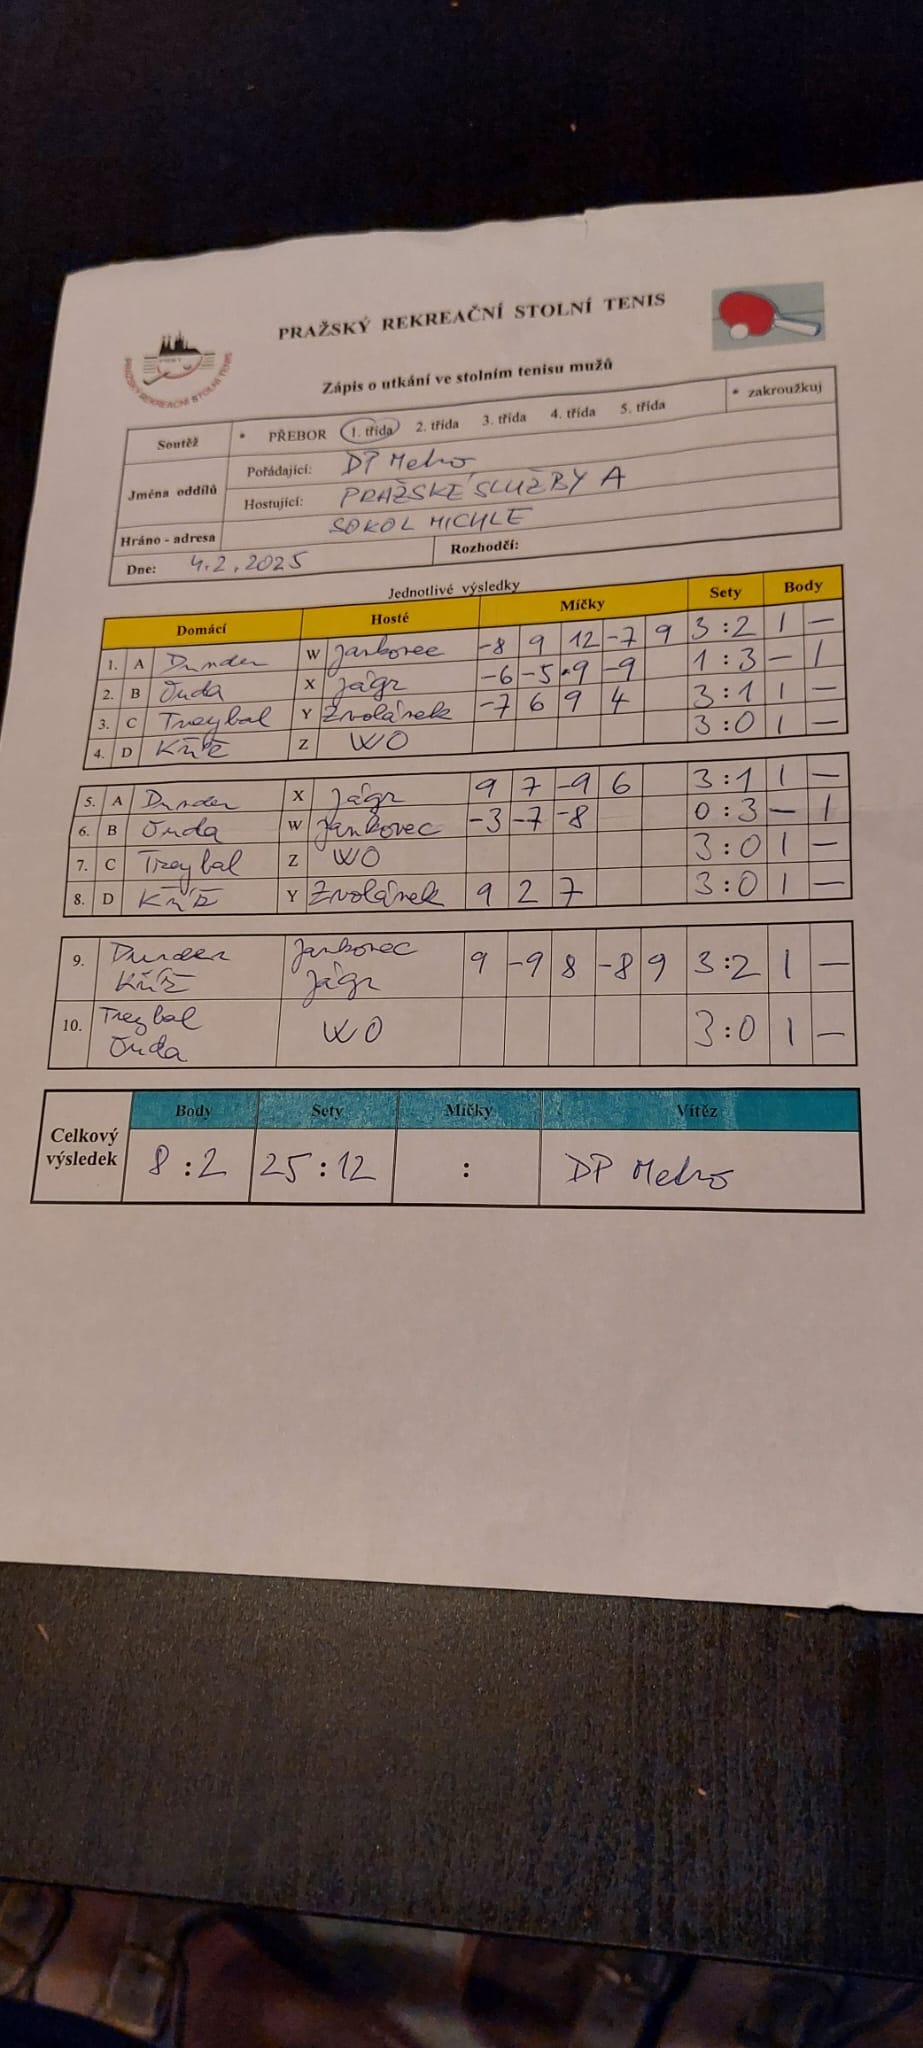 PRAŽSKÝ REKREAČNÍ STOLNÍ TENIS
PRAŽSKÝ REKREAČNÍ STOLNÍ TENIS
Zápis o utkání ve stolním tenisu mužů
Soutěž * PŘEBOR 1. třída 2. třída 3. třída 4. třída 5. třída * zakroužkuj
Jména oddílů
Pořádající: DP Metro
Hostující: PRAŽSKÉ SLUŽBY A
Hráno - adresa SOKOL MICHLE
Dne: 4.2.2025 Rozhodčí:
Jednotlivé výsledky
Domácí Hosté Míčky Sety Body
1. A Dunder W Jankovec -8 9 12 -7 9 3:2 1 –
2. B Ouda X Jágr -6 -5 9 -9 1:3 – 1
3. C Treybal Y Zvolánek -7 6 9 4 3:1 1 –
4. D Kříž Z WO 3:0 1 –
5. A Dunder X Jágr 9 7 -9 6 3:1 1 –
6. B Ouda W Jankovec -3 -7 -8 0:3 – 1
7. C Treybal Z WO 3:0 1 –
8. D Kříž Y Zvolánek 9 2 7 3:0 1 –
9. Dunder Jankovec 9 -9 8 -8 9 3:2 1 –
Kříž Jágr
10. Treybal WO 3:0 1 –
Ouda
Body Sety Míčky Vítěz
Celkový výsledek 8:2 25:12 : DP Metro